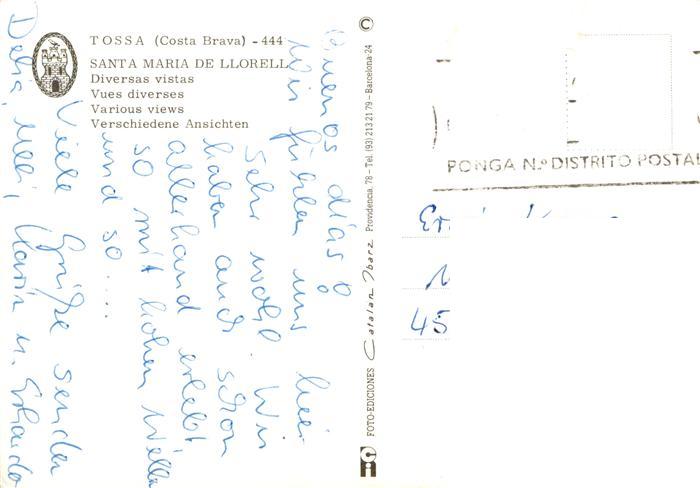 TOSSA (Costa Brava) - 444
SANTA MARIA DE LLORELL
Diversas vistas
Vues diverses
Various views
Verschiedene Ansichten
Buenos días!
Wir fühlen uns hier
sehr wohl. Wir
haben auch schon
allerhand erlebt
so mit hohen Wellen
und so ....
Viele Grüße senden
Delia, Ulli,
FOTO-EDICIONES Catalan Ibarz Providencia, 78 - Tel. (93) 213 21 79 - Barcelona-24
©
PONGA N.º DISTRITO POSTAL
45